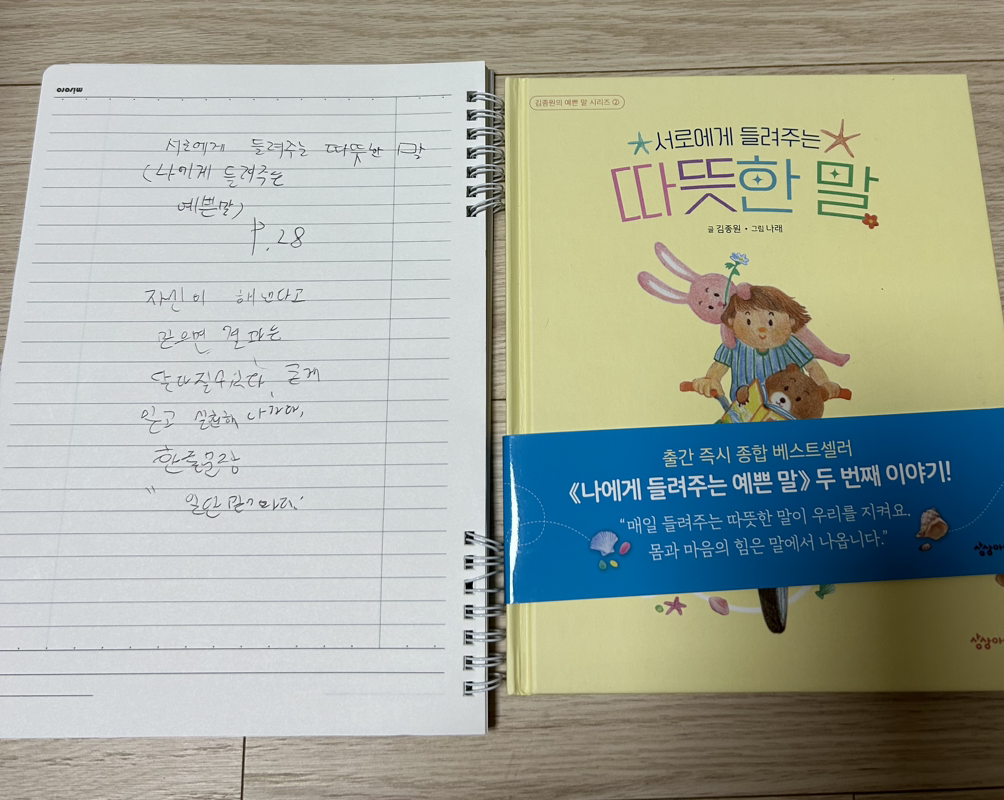 서로에게 들려주는 따뜻한 말
(나에게 들려주는
예쁜말)
P.28
자신이 해낸다고
믿으면 결과는
달라질수있다 굳게
믿고 실천해 나가자.
한줄문장
"일단
김종원의 예쁜 말 시리즈 ②
서로에게 들려주는
따뜻한 말
글 김종원 • 그림 나래
출간 즉시 종합 베스트셀러
《나에게 들려주는 예쁜 말》 두 번째 이야기!
"매일 들려주는 따뜻한 말이 우리를 지켜요.
몸과 마음의 힘은 말에서 나옵니다."
상상아
상상아